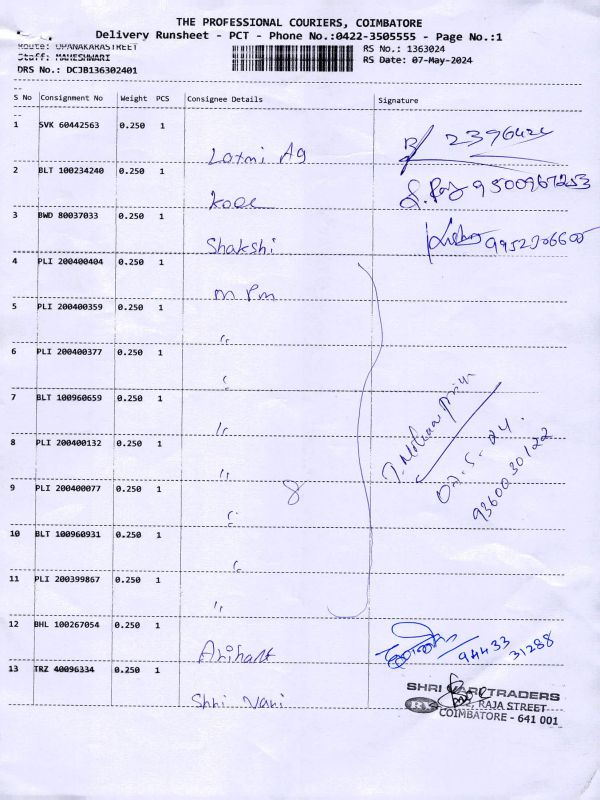 THE PROFESSIONAL COURIERS, COIMBATORE
Delivery Runsheet - PCT - Phone No.:0422-3505555 - Page No.:1
Route: UPANAKARASTREET
RS No.: 1363024
Staff: MAHESHWARI
RS Date: 07-May-2024
DRS No.: DCJB136302401
S No Consignment No Weight PCS Consignee Details Signature
1 SVK 60442563 0.250 1
Laxmi Ag
2 BLT 100234240 0.250 1
9500967253
Kode
3 BWD 80037033 0.250 1
Shakshi
4 PLI 200400404 0.250 1
m Pm
5 PLI 200400359 0.250 1
"
6 PLI 200400377 0.250 1
7 BLT 100960659 0.250 1
"
8 PLI 200400132 0.250 1
"
9 PLI 200400077 0.250 1
8
10 BLT 100960931 0.250 1
11 PLI 200399867 0.250 1
"
07.5.24.
9360030122
12 BHL 100267054 0.250 1
94433
31288
Arihant
13 TRZ 40096334 0.250 1
Shri Vani
SHRI VANI TRADERS
RAJA STREET
COIMBATORE - 641 001